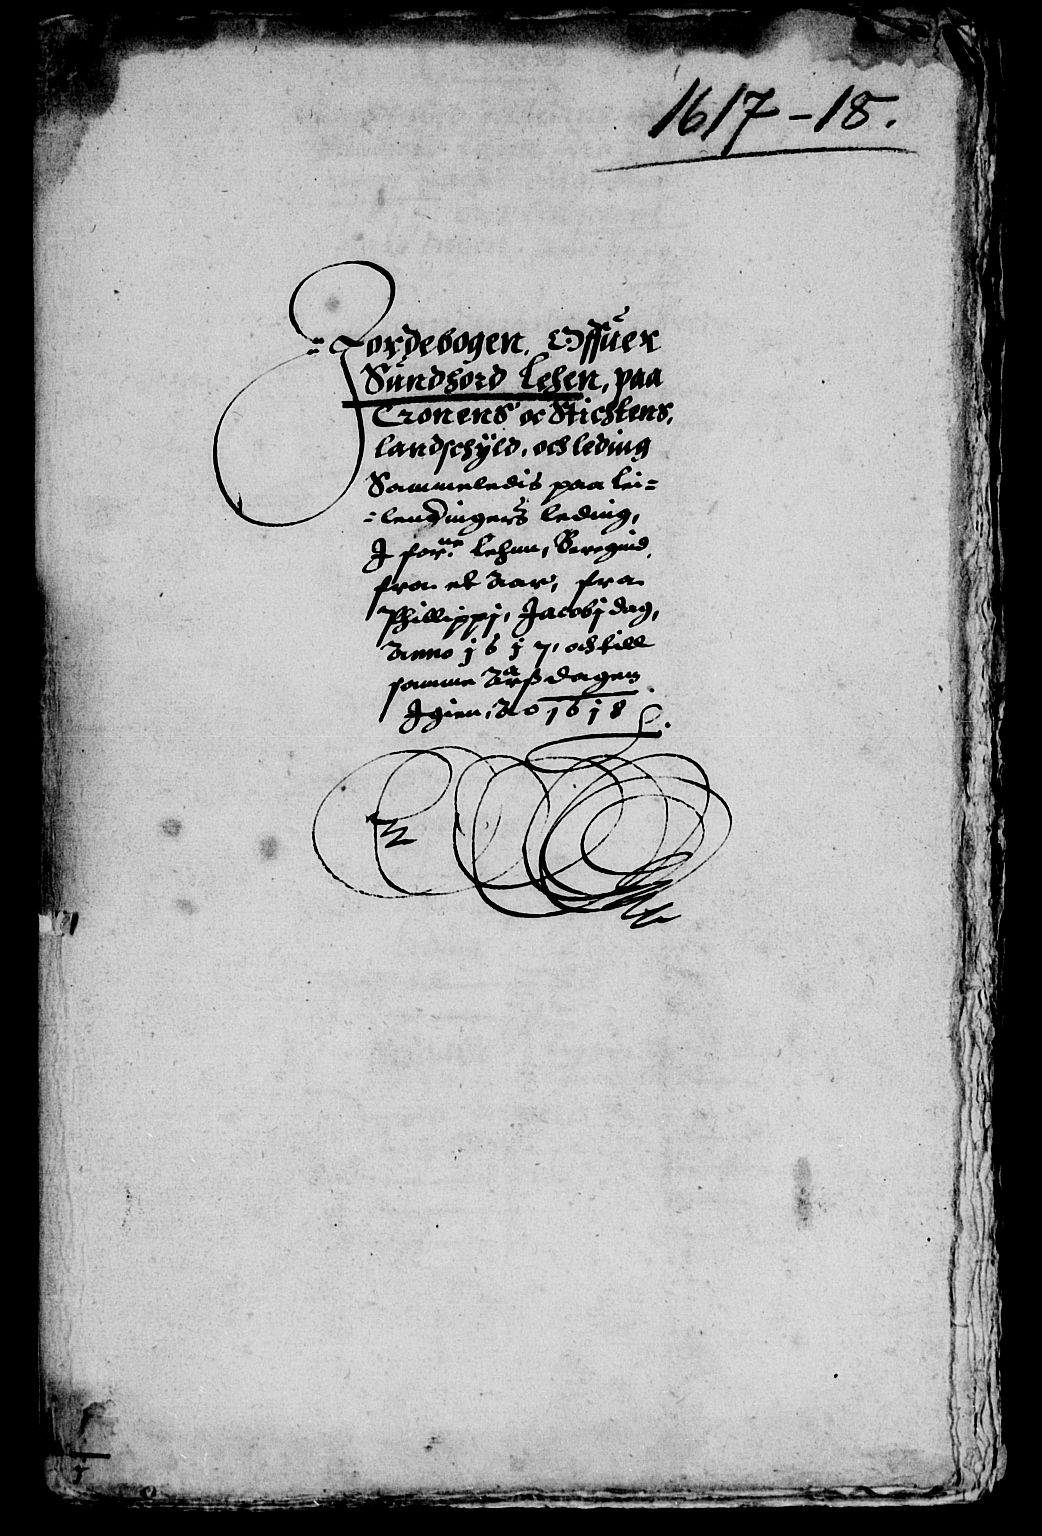 1617-18.
Jordebogen. Offuer
Sundhord Lehen, paa
Cronens oc Stichtens,
landschÿld, och leding
Sammeledis paa lei=
=lendingers leding,
J for:ne Lehnn, Beregnid
fra et Aar, fra
Phillippj, Jacobj dag,
Anno 1617, och till
samme Aarß dagen
Jgien, Ao 1618